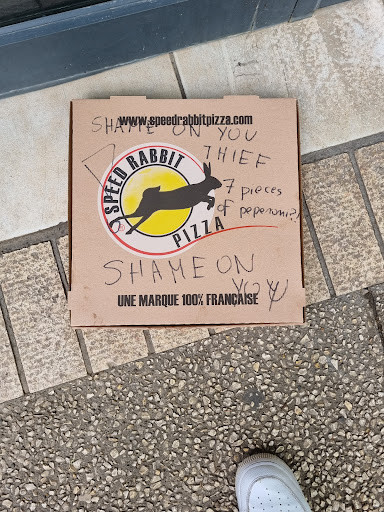 www.speedrabbitpizza.com
SHAME ON YOU
THIEF
SPEED RABBIT
PIZZA
7 pieces
of peperoni?!
SHAME ON
YOU
UNE MARQUE 100% FRANÇAISE